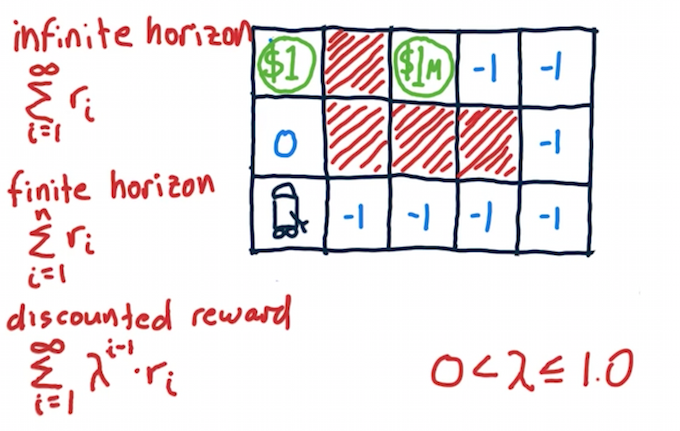 infinite horizon
∞
Σ rᵢ
i=1
finite horizon
n
Σ rᵢ
i=1
discounted reward
∞
Σ λ^(i-1) · rᵢ
i=1
$1 $1M -1 -1
0 -1
-1 -1 -1 -1
0 < λ ≤ 1.0